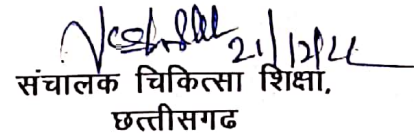 21/12/22
संचालक चिकित्सा शिक्षा,
छत्तीसगढ